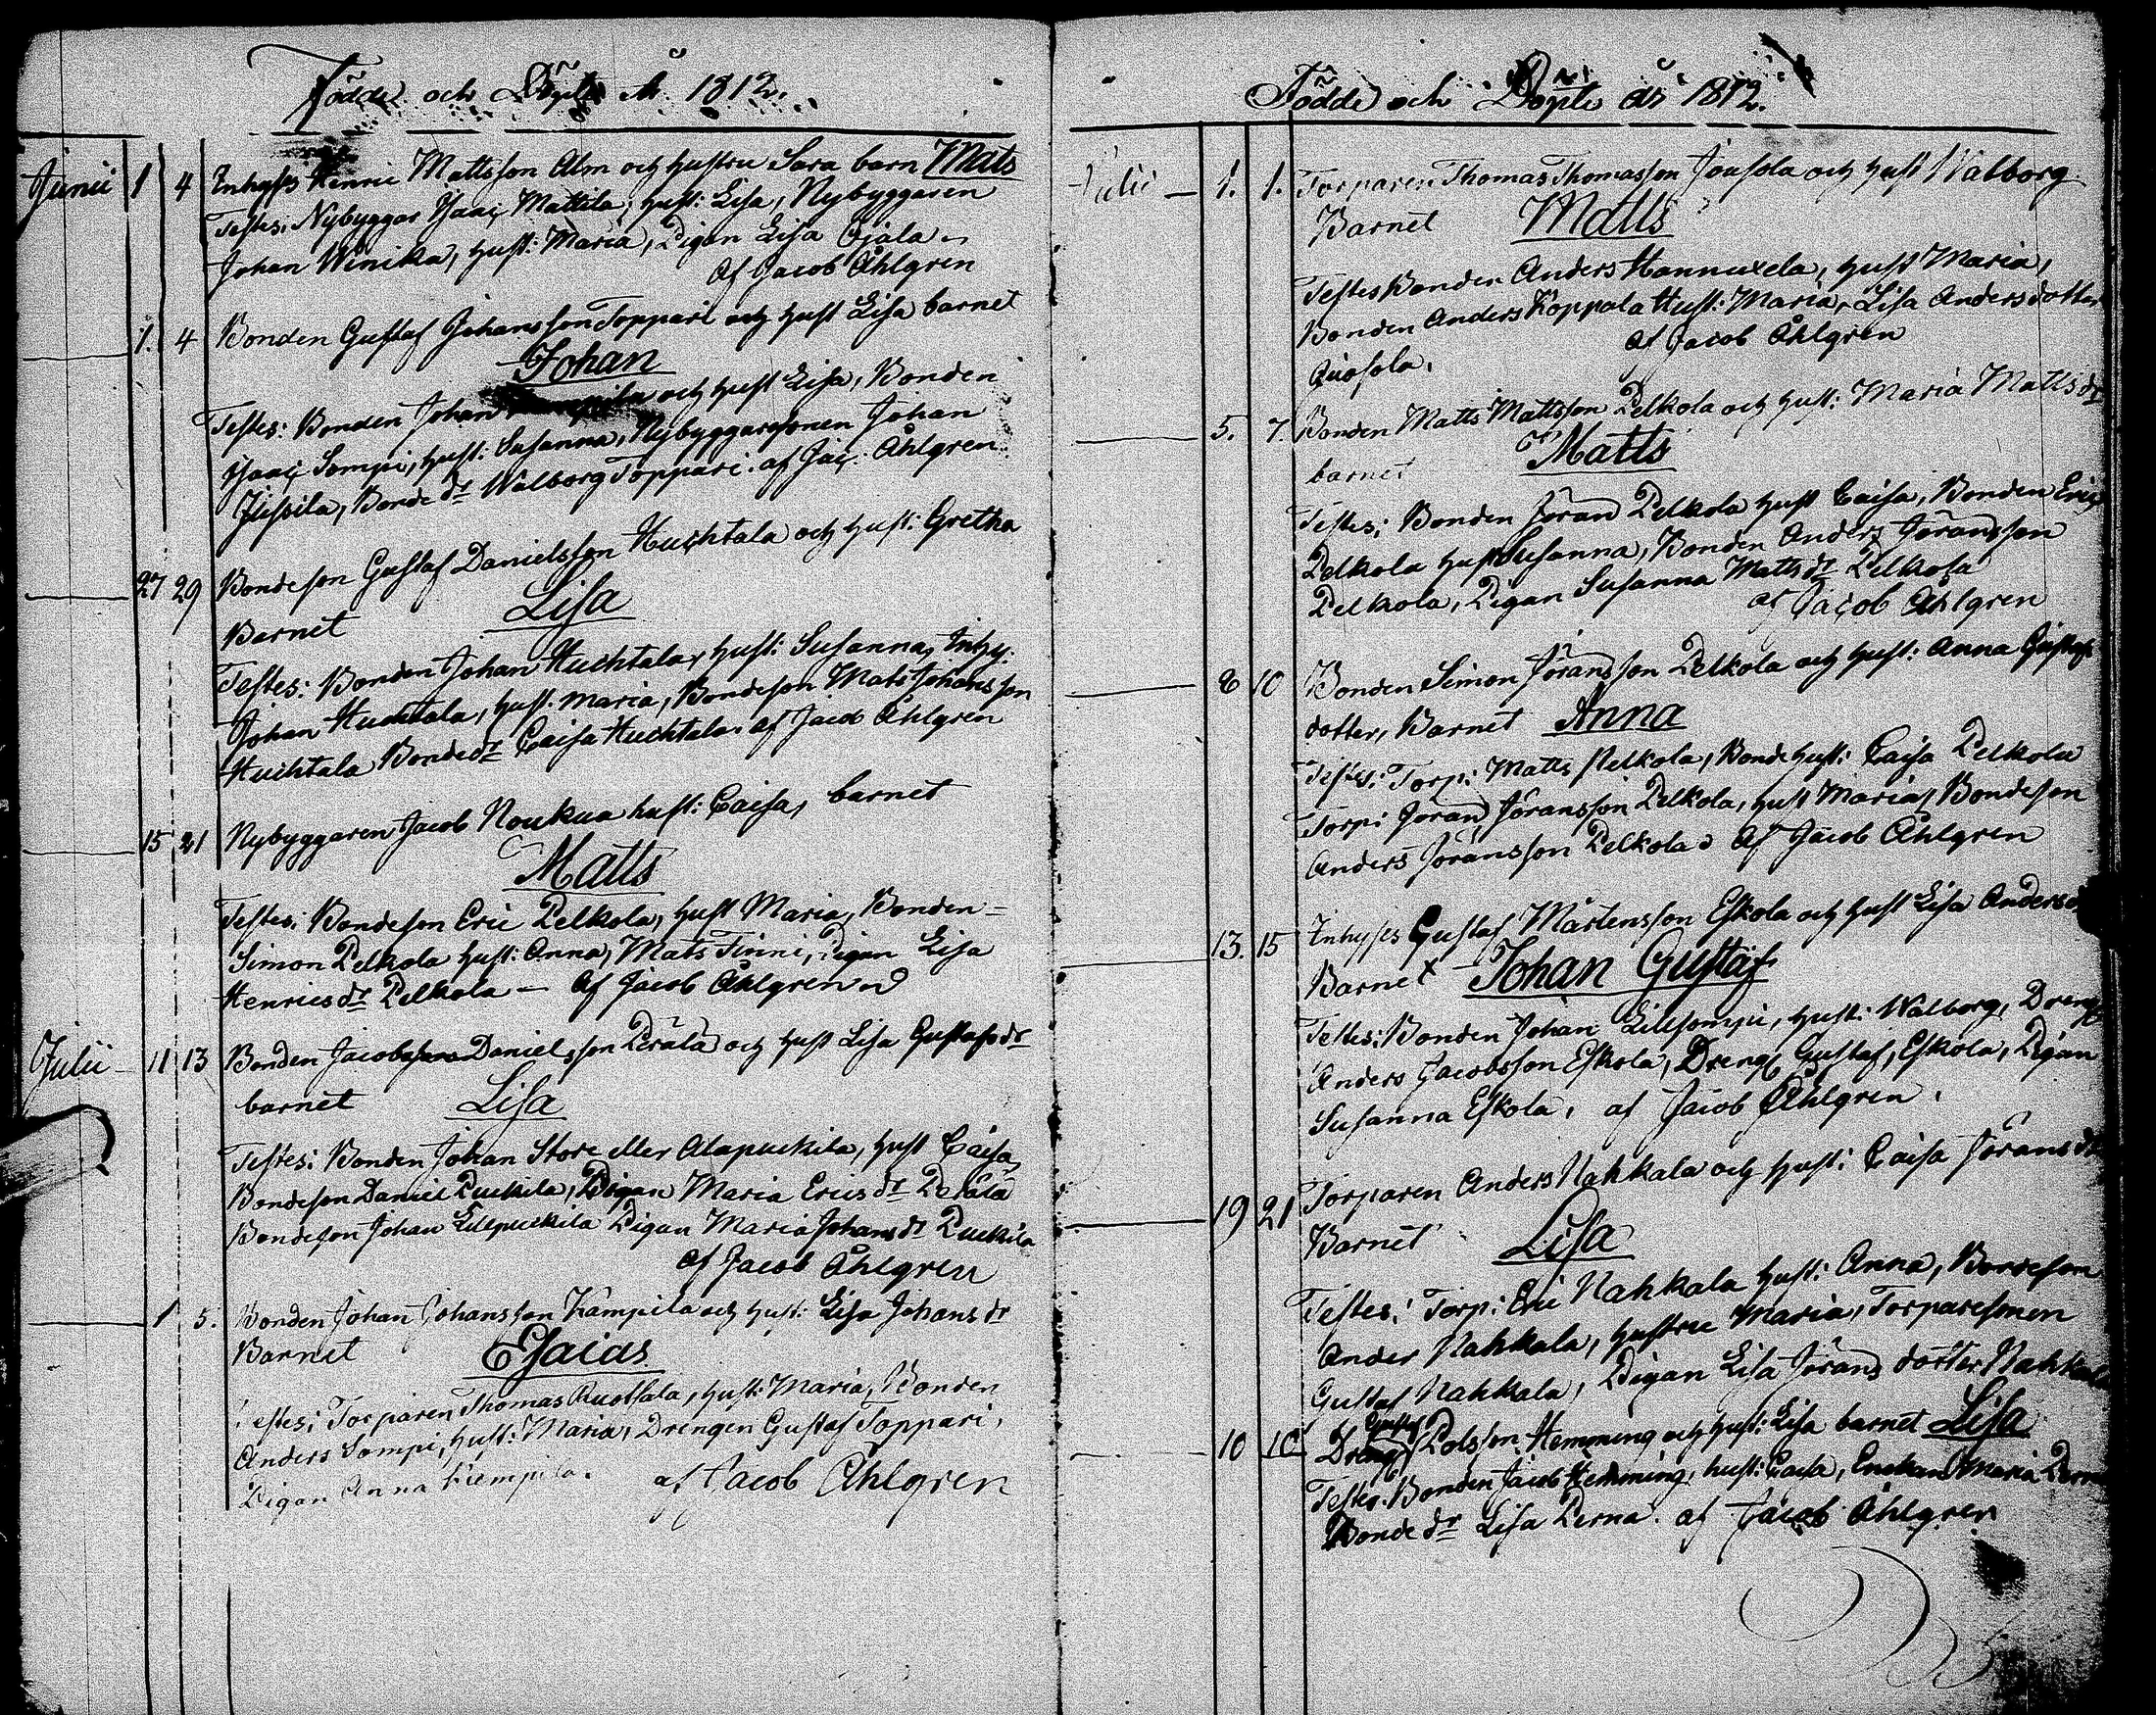 Födde och Döpte År 1812.
Junii 1 4 Inhyses Henric Mattsson Alm och hustru Sara barn Mats
Testes: Nybyggar Isaac Mattila, hust: Lisa, Nybyggaren
Johan Winika, hust: Maria, Pigan Lisa Ojala
Af Jacob Åhlgren
1. 4 Bonden Gustaf Johansson Toppari och hust Lisa barnet
Johan
Testes: Bonden Johan och hust Lisa, Bonden
Isaac Sompi, hust: Susanna, Nybyggaresonen Johan
Jussila, Bonde dr Walborg Toppari. af Jac: Åhlgren
27 29 Bondeson Gustaf Danielsson Huchtala och hust: Gretha
Barnet Lisa
Testes: Bonden Johan Huchtala, hust: Susanna, Inhy:
Johan Huchtala, hust. Maria, Bondeson Mats Johansson
Huchtala Bondedr Caisa Huchtala. af Jacob Åhlgren
15 21 Nybyggaren Jacob Noukua hust: Caisa, barnet
Matts
Testes: Bondeson Eric Pelkola, hust Maria, Bonden
Simon Pelkola hust: Anna, Mats Finni, Pigan Lisa
Henricsdr Pelkola — Af Jacob Åhlgren
Julii 11 13 Bonden Jacob Danielsson Perälä och hust Lisa Gustafsdr
barnet Lisa
Testes: Bonden Johan Store eller Alapuckila, hust Caisa,
Bondeson Daniel Puckila, Pigan Maria Ericsdr Perälä
Bondeson Johan Lillpuckila Pigan Maria Johansdr Puckila
af Jacob Åhlgren
1 5. Bonden Johan Johansson Kämpilä och hust: Lisa Johansdr
Barnet Esaias
Testes: Torparen Thomas Ruotsala, hust: Maria, Bonden
Anders Sompi, hust: Maria, Drengen Gustaf Toppari,
Pigan Anna Kiempila. af Jacob Åhlgren
Födde och Döpte år 1812.
Julii — 1. 1. Torparen Thomas Thomasson Jousola och hust Walborg
Barnet Matts
Testes Bonden Anders Hannuxela, hust Maria,
Bonden Anders Koppola Hust: Maria, Lisa Andersdotter
af Jacob Åhlgren
5. 7. Bonden Matts Mattsson Pelkola och hust: Maria Mattsdr
barnet Matts
Testes: Bonden Jöran Pelkola hust Caisa, Bonden Eric
Pelkola hust Susanna, Bonden Anders Göransson
Pelkola, Pigan Susanna Mattsdr Pelkola
af Jacob Åhlgren
8 10 Bonden Simon Jöransson Pelkola och hust: Anna Gustafs
dotter, Barnet Anna
Testes: Torp: Matts Pelkola, Bonde hust: Caisa Pelkola
Torp: Jöran Jöransson Pelkola, hust Maria, Bondeson
Anders Jöransson Pelkola Af Jacob Åhlgren
13. 15 Inhyses Gustaf Mårtensson Eskola och hust Lisa Andersd
Barnet Johan Gustaf
Testes: Bonden Johan Lillsompi, hust: Walborg, Dreng
Anders Jacobsson Eskola, Dreng Gustaf Eskola, Pigan
Susanna Eskola, af Jacob Åhlgren.
19 21 Torparen Anders Nahkala och hust: Caisa Jöransdr
Barnet Lisa
Testes: Torp: Eric Nahkala hust: Anna, Bondeson
Ander Nahkala, hustru Maria, Torparesonen
Gustaf Nahkala, Pigan Lisa Jörans dotter Nahkal
Gustaf
10 10 Dreng Polsson Hemming och hust: Lisa barnet Lisa
Testes: Bonden Jacob Hemming, hust: Caisa, Enckan Maria Perna
Bonde dr Lisa Perna. af Jacob Åhlgren